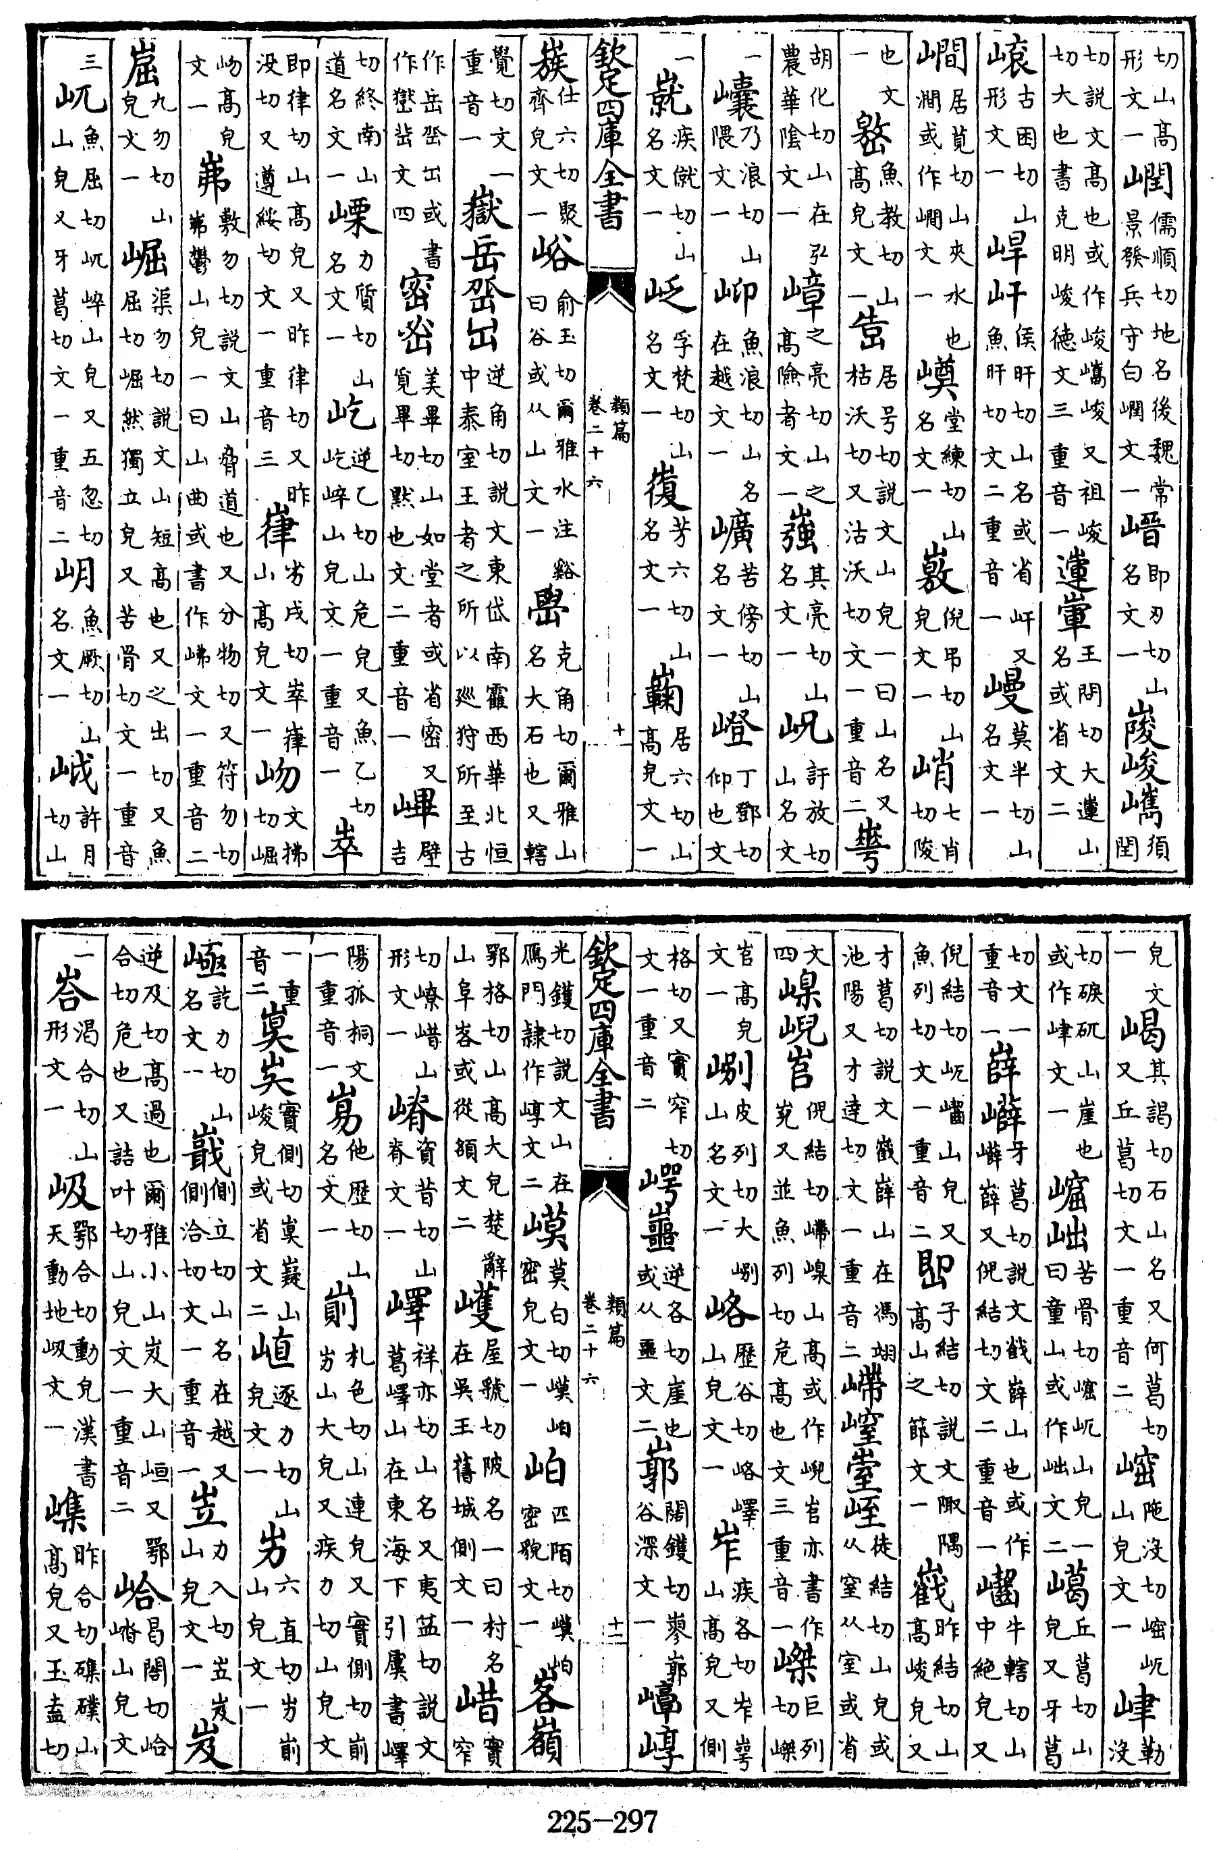 切山髙形文一 儒順切地名後魏常景發兵守白文一 即刃切山名文一 峻嶲須閏
切說文髙也或作峻嶲峻又祖峻切大也書克明峻德文三重音一 王問切大山名或省文二
古困切山形文一 屽侯旰切山名或省屽又魚旰切文二重音一 莫半切山名文一
居莧切山夾水也澗或作文一 堂練切山名文一 倪弔切山皃文一 峭七肖切陵
也文一 魚教切山髙皃文一 峼居号切說文山皃一曰山名又枯沃切又沽沃切文一重音二 崋
胡化切山在弘農華陰文一 嶂之亮切山之髙險者文一 嵹其亮切山名文一 許放切山名文
一 乃浪切山隈文一 魚浪切山名在越文一 苦傍切山名文一 嶝丁鄧切仰也文
一 疾僦切山名文一 孚梵切山名文一 芳六切山名文一 居六切山髙皃文一
欽定四庫全書 類篇 卷二十六 十
仕六切聚齊皃文一 峪俞玉切爾雅水注谿曰谷或从山文一 嶨克角切爾雅山名大石也又轄
覺切文一重音一 嶽岳逆角切說文東岱南靃西華北恒中泰室王者之所以廵狩所至古
作岳或書作文四 密美畢切山如堂者或省密又覓畢切黙也文二重音一 壁吉
切終南山道名文一 力質切山名文一 屹逆乙切山危皃又魚乙切屹崪山皃文一重音一 崒
即律切山髙皃又昨律切又昨没切又遵綏切文一重音三 嵂劣戌切崒嵂山髙皃文一 岉文拂切崛
岉髙皃文一 岪敷勿切說文山脅道也又分物切又符勿切岪鬱山皃一曰山曲或書作文一重音二
崫九勿切山皃文一 崛渠勿切說文山短髙也又之出切又魚屈切崛然獨立皃又苦骨切文一重音
三 屼魚屈切屼崪山皃又五忽切山皃又牙葛切文一重音二 岄魚厥切山名文一 許月切山
皃文一 嵑其謁切石山名又何葛切又丘葛切文一重音二 陁沒切崛屼山皃文一 峍勒沒
切硉矹山崖也或作峍文一 苦骨切崛屼山皃一曰童山或作文二 丘葛切山皃又牙葛
切文一重音一 嶭牙葛切說文嶻嶭山也或作嶭又倪結切文二重音一 牛轄切山中絶皃又
倪結切屼山皃又魚列切文一重音二 岊子結切說文陬隅髙山之節文一 嶻昨結切山髙峻皃又
才葛切說文嶻嶭山在馮翊池陽又才達切文一重音二 嵽徒結切山皃或从窒从室或省
文四 嵲倪結切嵽嵲山髙或作亦書作又並魚列切危髙也文三重音一 嵥巨列切嵥
髙皃文一 峢皮列切大峢山名文一 峈歷谷切峈嶧山皃文一 岝疾各切岝崿山髙皃又側
格切又實窄切文一重音二 崿逆各切崖也或从噩文二 闊鑊切谷深文一 崞
欽定四庫全書 類篇 卷二十六 十一
光鑊切說文山在鴈門隸作崞文二 莫白切岶密皃文一 岶匹陌切岶密貌文一 峉
鄂格切山髙大皃楚辭山阜峉或從額文二 屋號切陂名一曰村名在吳王舊城側文一 實窄
切山形文一 嵴資昔切山脊文一 嶧祥亦切山名又夷益切說文葛嶧山在東海下引虞書嶧
陽孤桐文一重音一 他歷切山名文一 崱札色切山連皃又實側切崱屴山大皃又疾力切山皃文
一重音二 實側切嶷山峻皃或省文二 逐力切山皃文一 屴六直切屴崱山皃文一
訖力切山名文一 側立切山名在越又側洽切文一重音一 岦力入切岦岌山皃文一 岌
逆及切髙過也爾雅小山岌大山峘又鄂合切危也又詰叶切山皃文一重音二 峆曷閤切峆山皃文
一 峇渴合切山形文一 岋鄂合切動皃漢書天動地岋文一 昨合切磼山髙皃又玉盍切
225-297